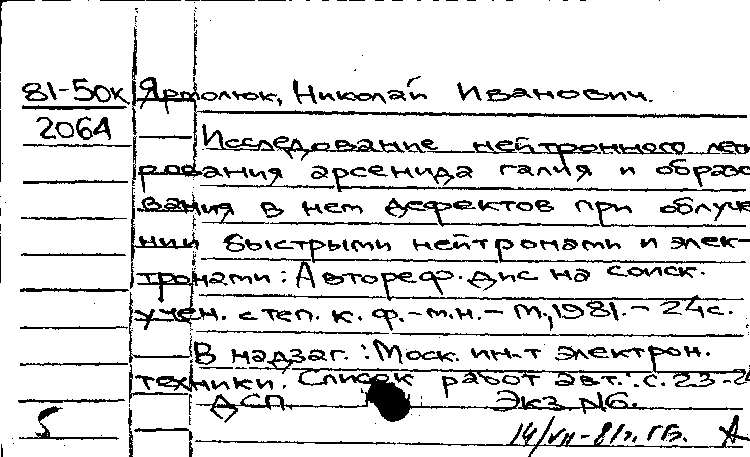 81-50к Ярмолюк, Николай Иванович.
206А
Исследование нейтронного лег
рования арсенида галия и образо
вания в нем дефектов при облуче
нии быстрыми нейтронами и элек-
тронами: Автореф. дис на соиск.
учен. степ. к. ф.-м.н. - М, 1981. - 24с.
В надзаг.: Моск. ин-т электрон.
техники. Список работ авт.: с. 23-2
ДСП. Экз №6.
5
14/VII-81г. ГБ. А